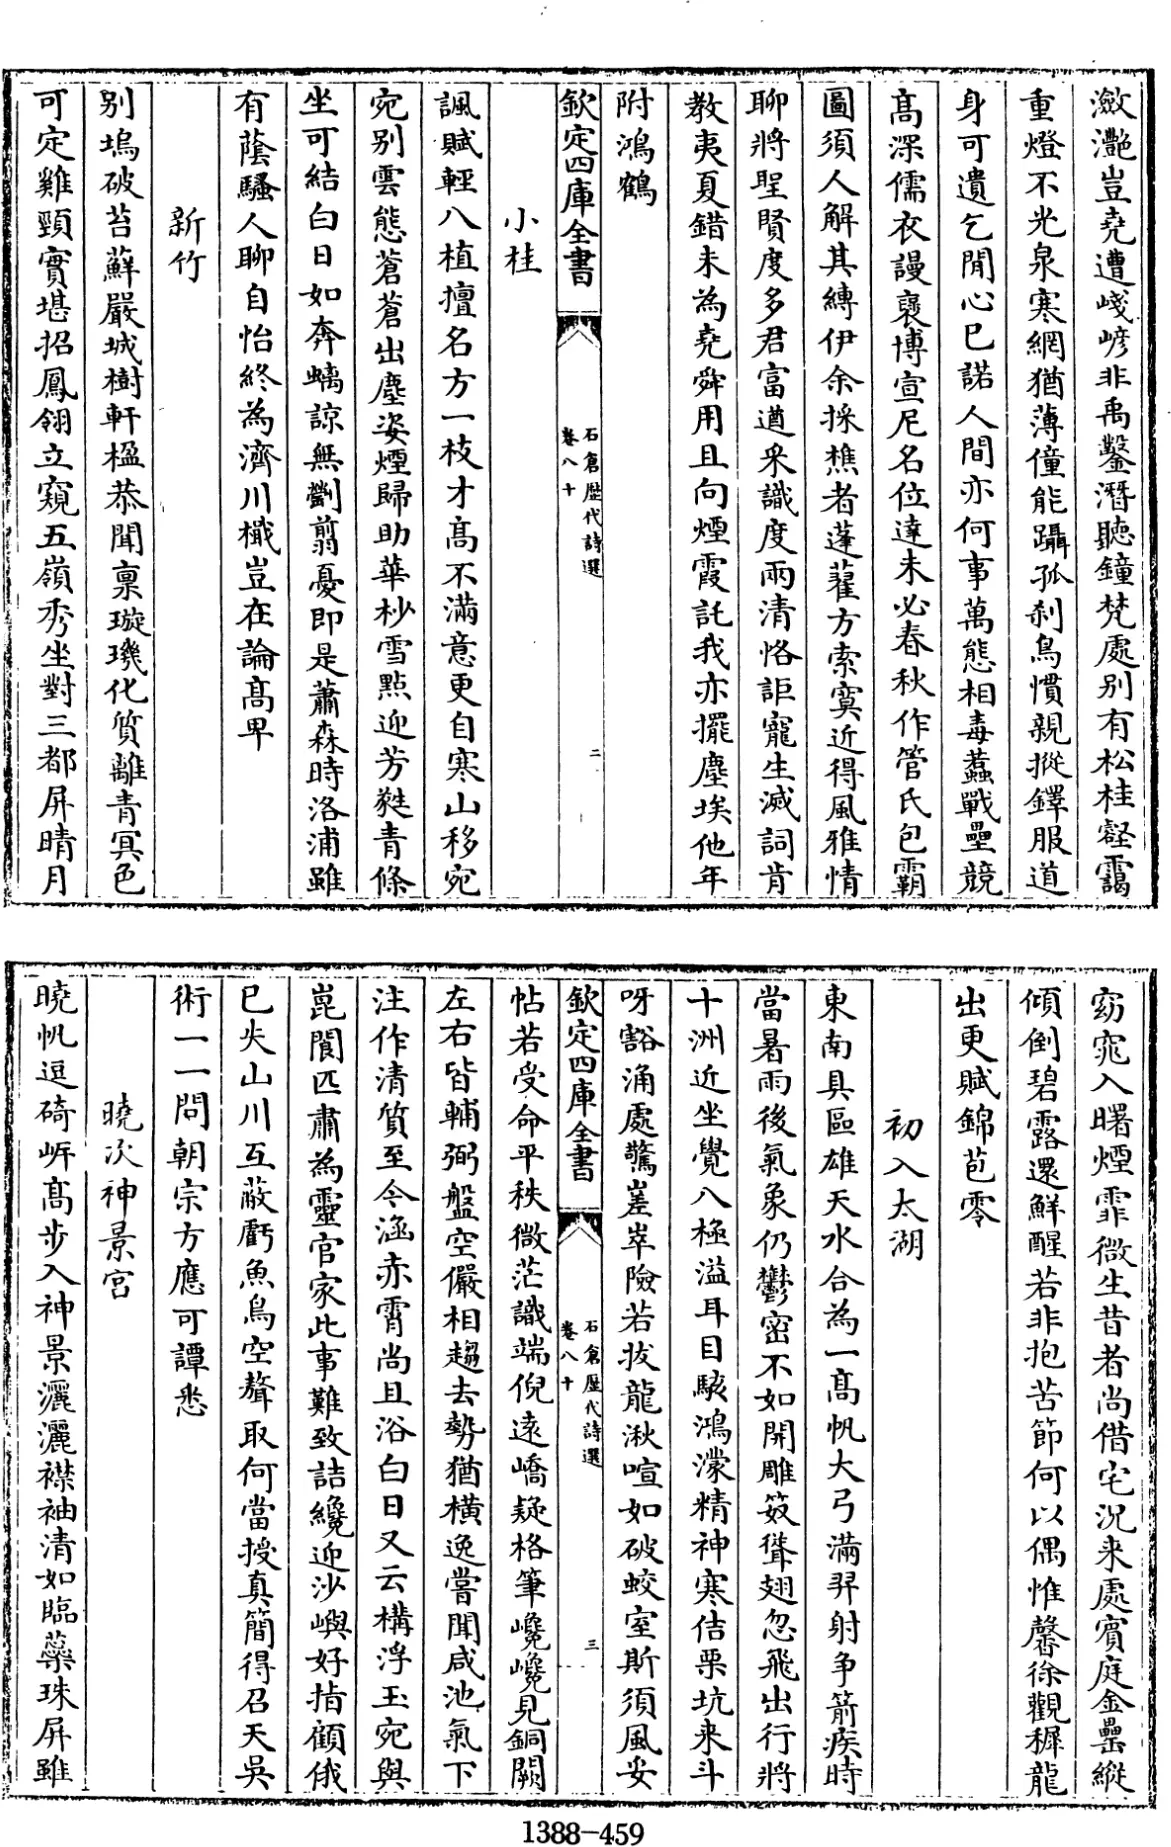 瀲灔豈堯遭嵯嵾非禹鑿潛聽鐘梵處别有松桂壑靄
重燈不光泉寒網猶薄僮能躡孤刹鳥慣親摐鐸服道
身可遺乞閒心已諾人間亦何事萬態相毒蠚戰壘競
髙深儒衣謾襃博宣尼名位達未必春秋作管氏包霸
圖須人解其縛伊余採樵者蓬藋方索寞近得風雅情
聊將聖賢度多君富遒采識度兩清恪詎寵生滅詞肯
教夷夏錯未為堯舜用且向煙霞託我亦擺塵埃他年
附鴻鶴
欽定四庫全書
石倉歷代詩選
卷八十
二
小桂
諷賦輕八植擅名方一枝才髙不滿意更自寒山移宛
宛别雲態蒼蒼出塵姿煙歸助華杪雪點迎芳蕤青條
坐可結白日如奔螭諒無劉翦憂即是蕭森時洛浦雖
有蔭騷人聊自怡終為濟川檝豈在論髙卑
新竹
别塢破苔蘚嚴城樹軒楹恭聞稟璇璣化質離青冥色
可定雞頸實堪招鳳翎立窺五嶺秀坐對三都屏晴月
窈窕入曙煙霏微生昔者尚借宅況来處賓庭金罍縱
傾倒碧露還鮮醒若非抱苦節何以偶惟馨徐觀穉龍
出更賦錦苞零
初入太湖
東南具區雄天水合為一髙帆大弓滿羿射争箭疾時
當暑雨後氣象仍鬱密不如開雕笯聳翅忽飛出行將
十洲近坐覺八極溢耳目駭鴻濛精神寒佶栗坑来斗
呀豁涌處驚嵳崒險若拔龍湫喧如破蛟室斯須風妥
欽定四庫全書
石倉歷代詩選
卷八十
三
帖若受命平秩微茫識端倪遠嶠疑格筆巉巉見銅闕
左右皆輔弼盤空儼相趨去勢猶横逸嘗聞咸池氣下
注作清質至今涵赤霄尚且浴白日又云構浮玉宛與
崑閬匹肅為靈官家此事難致詰纔迎沙嶼好指顧俄
已失山川互蔽虧魚鳥空聱取何當授真簡得召天吳
術一一問朝宗方應可譚悉
曉次神景宮
曉帆逗碕岍髙步入神景灑灑襟袖清如臨蘂珠屏雖
1388-459